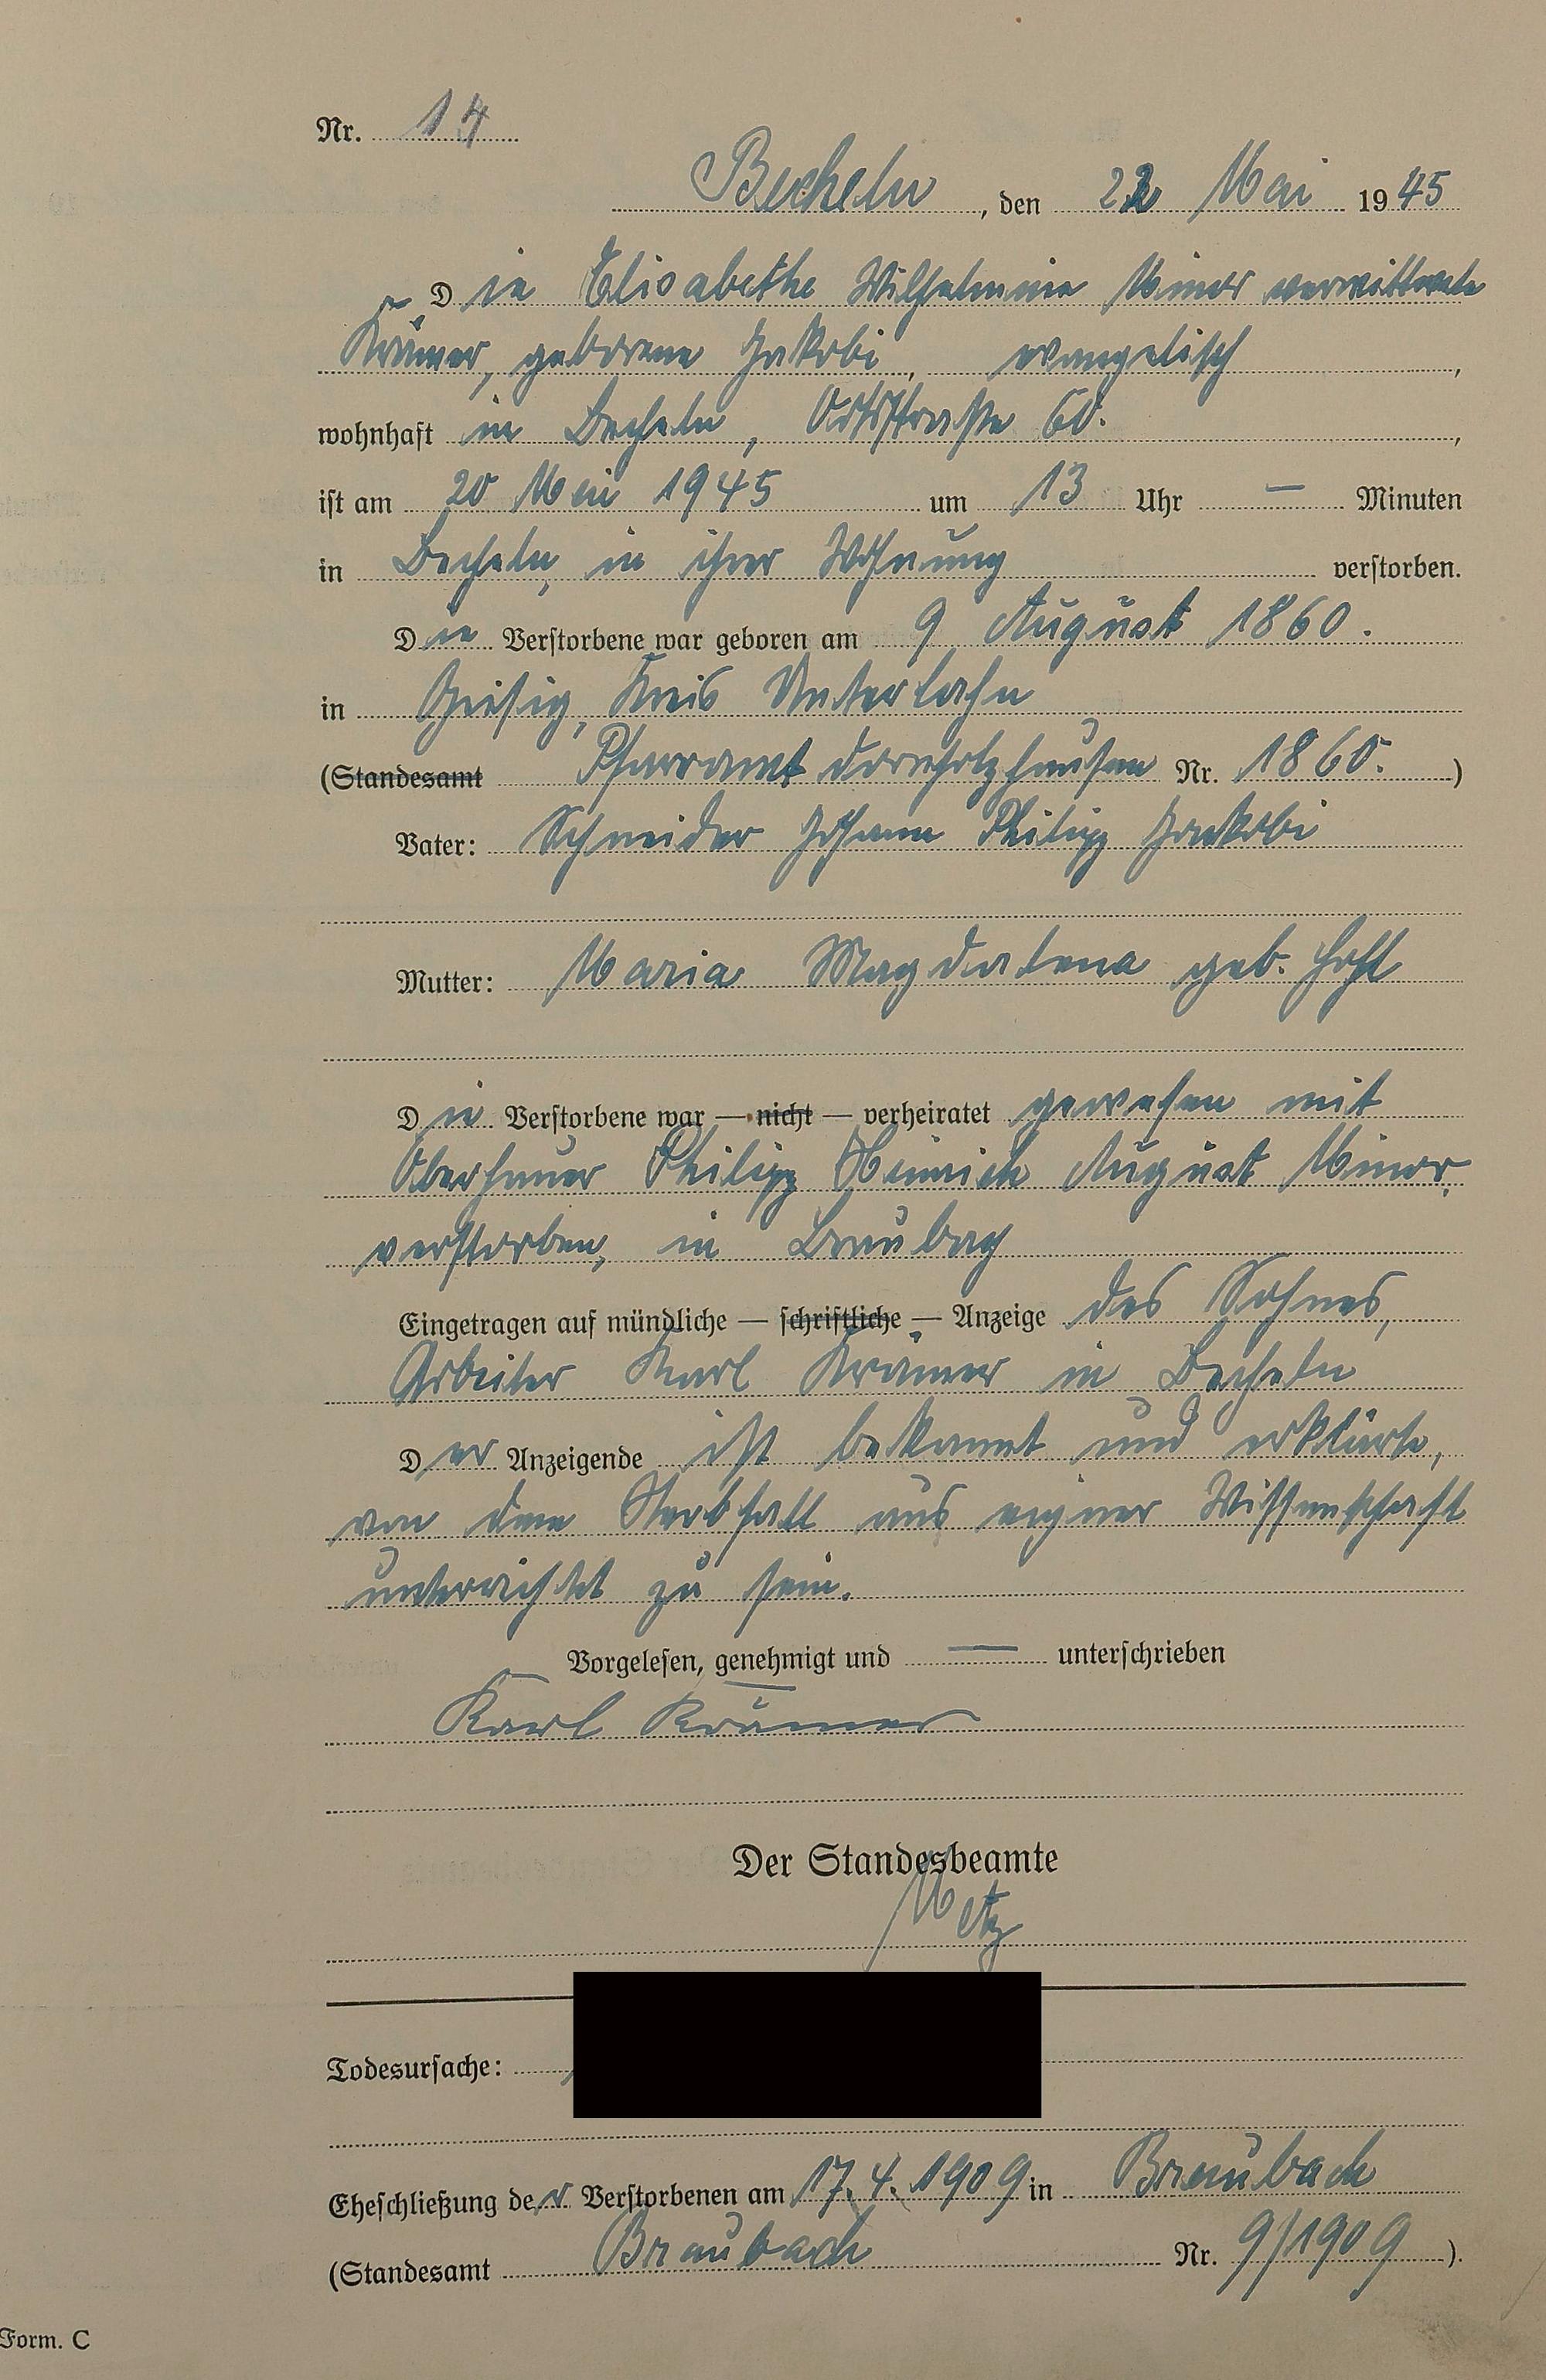 Nr. 14
Becheln, den 22 Mai 1945
Die Elisabethe Wilhelmine Minor verwittwete
Krämer, geborene Jakobi, evangelisch,
wohnhaft in Becheln, Ortsstraße 60.,
ist am 20 Mai 1945 um 13 Uhr — Minuten
in Becheln, in ihrer Wohnung verstorben.
Die Verstorbene war geboren am 9 August 1860.
in Geisig, Kreis Unterlahn
(Standesamt Pfarramt Dornholzhausen Nr. 1860.)
Vater: Schneider Johann Philipp Jakobi
Mutter: Maria Magdalena geb.
Die Verstorbene war — nicht — verheiratet gewesen mit
Oberhauer Philipp Heinrich August Minor,
verstorben, in Braubach
Eingetragen auf mündliche — schriftliche — Anzeige des Sohnes,
Arbeiter Karl Krämer in Becheln
Der Anzeigende ist bekannt und erklärte,
von dem Sterbfall aus eigner Wissenschaft
unterrichtet zu sein.
Vorgelesen, genehmigt und — unterschrieben
Karl Krämer
Der Standesbeamte
Metz
Todesursache:
Eheschließung der Verstorbenen am 17.4.1909 in Braubach
(Standesamt Braubach Nr. 9/1909).
Form. C